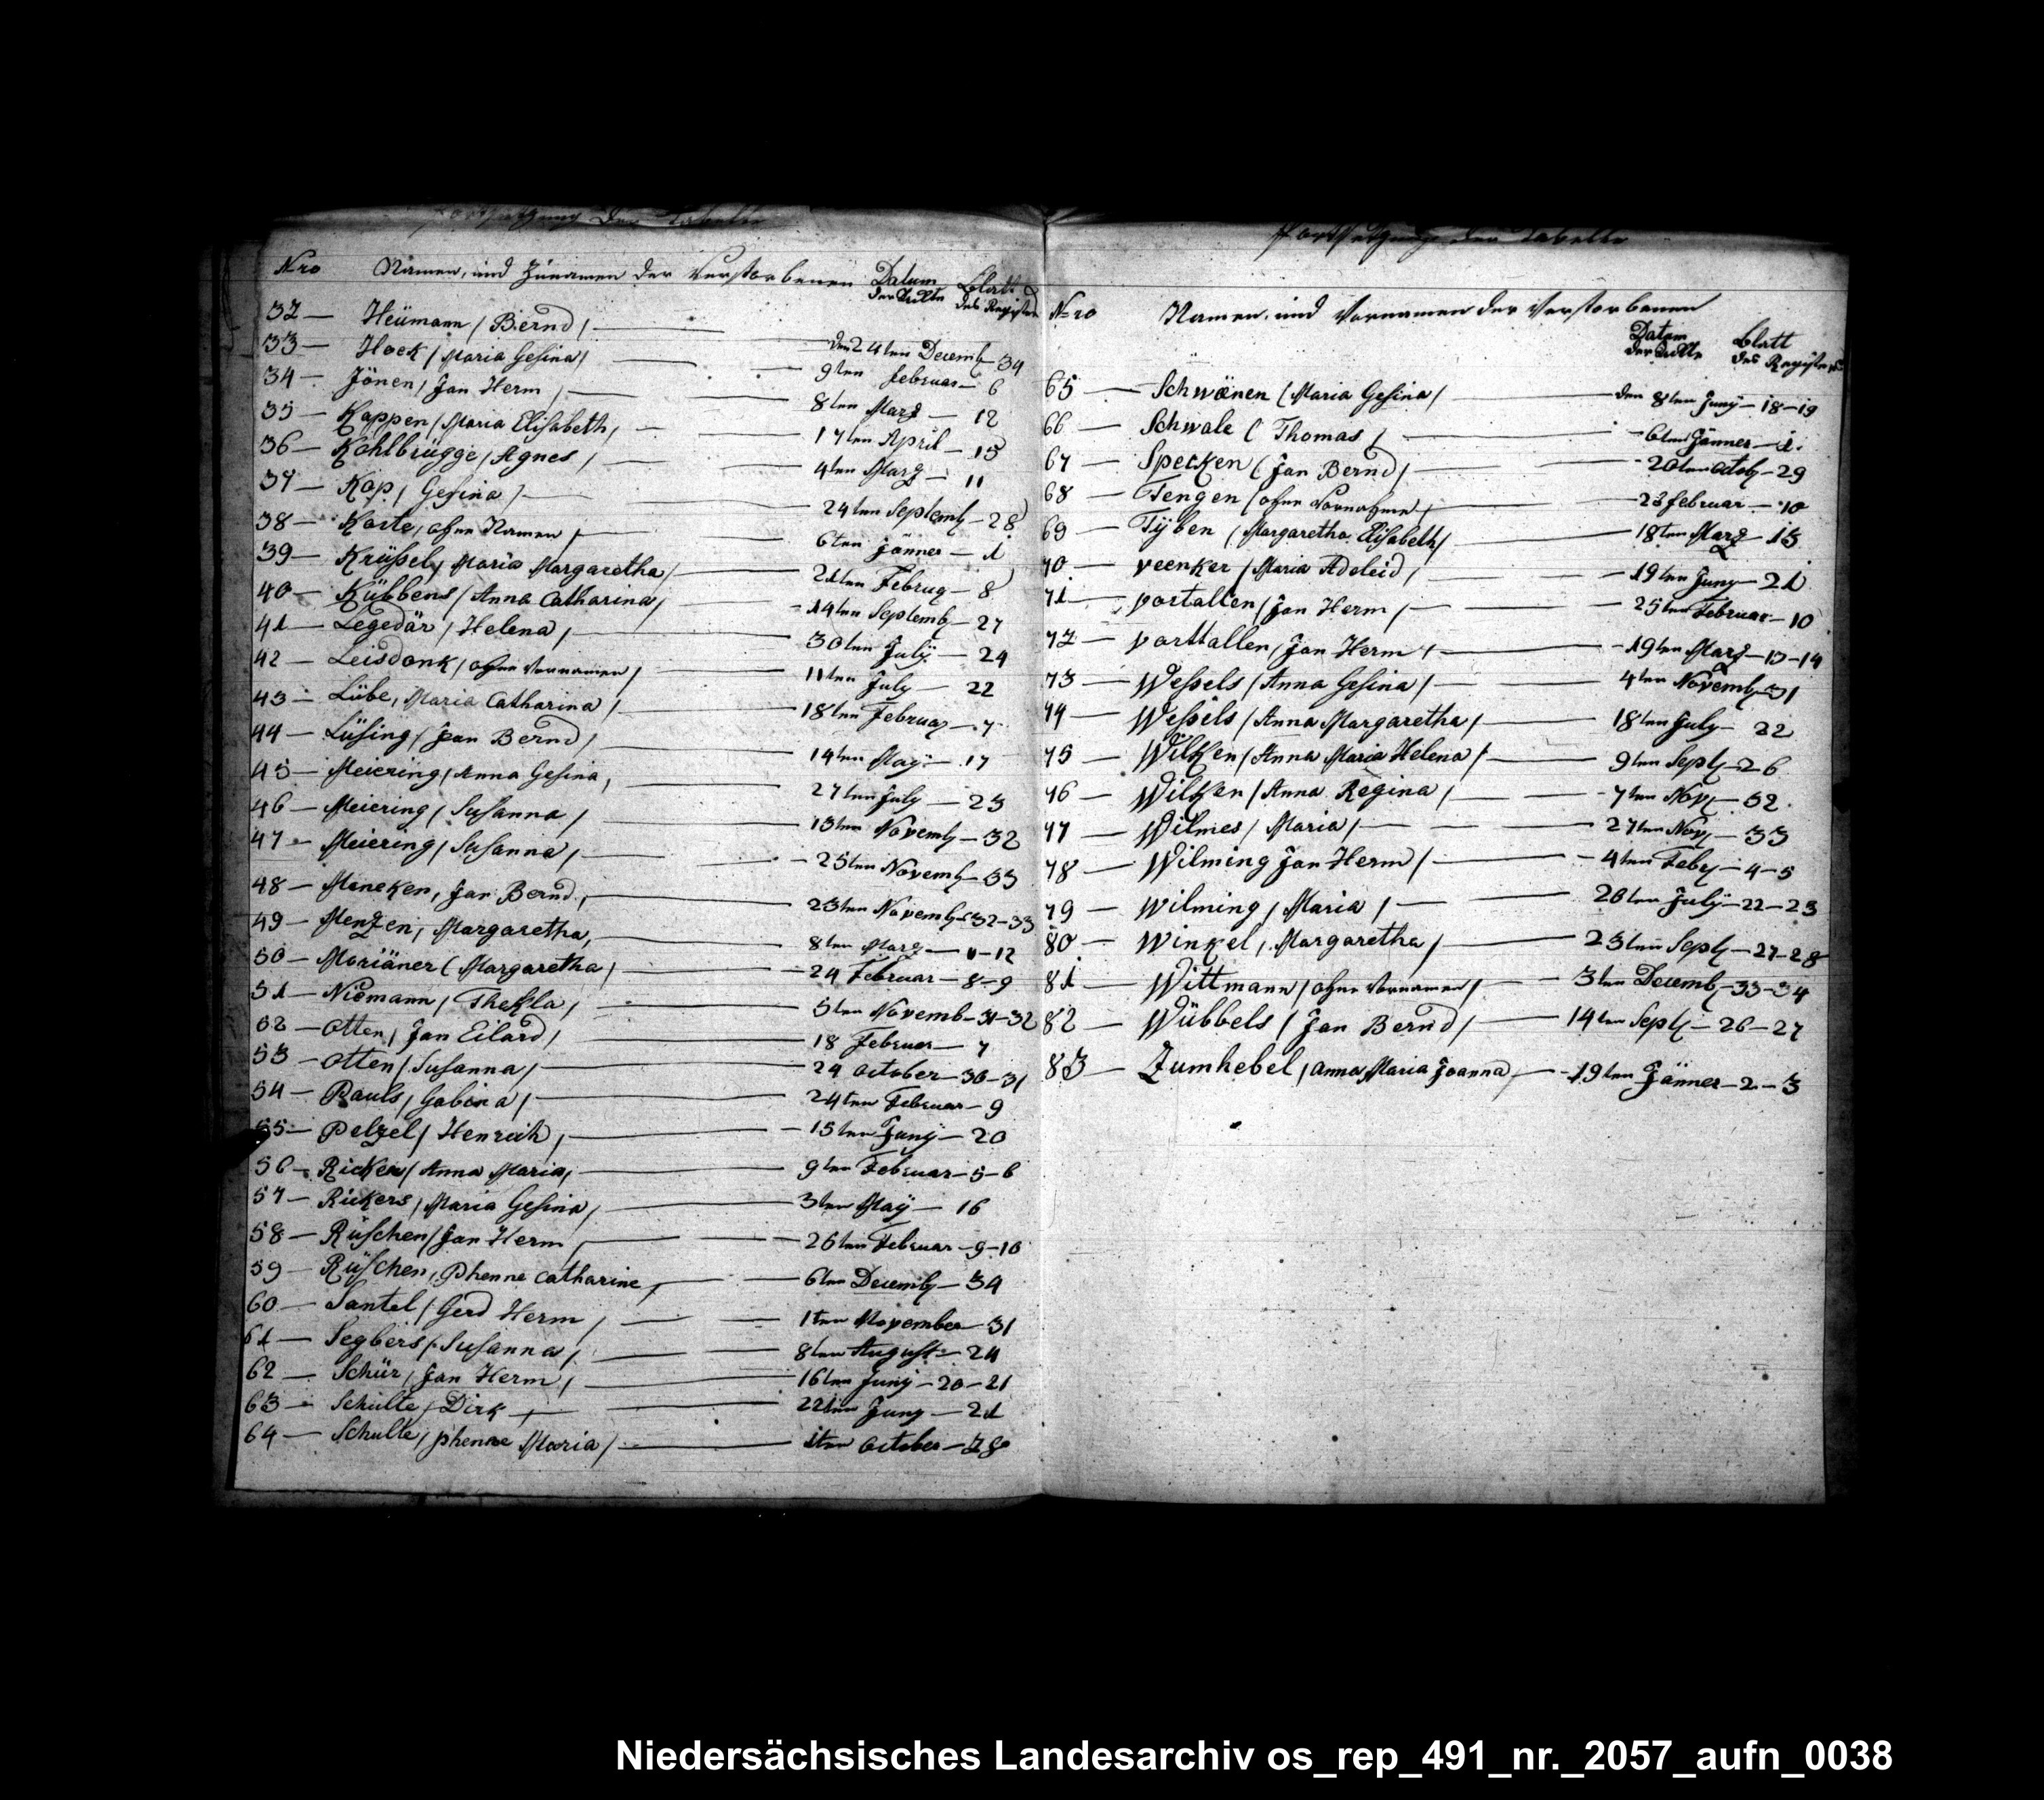 Fortsetzung der Tabelle
Nro Namen, und Zunamen der Verstorbenen Datum der Acte Blatt des Registers
32 — Heümann / Bernd / — den 24ten Decemb — 34
33 — Hoek / Maria Gesina / — 9ten Februar — 6
34 — Jönen / Jan Herm / — 8ten Marz — 12
35 — Kappen / Maria Elisabeth / — 17ten April — 15
36 — Kohlbrügge / Agnes / — 4ten Marz — 11
37 — Kop / Gesina / — 24ten Septemb — 28
38 — Korte, ohne Namen / — 6ten Jänner — 1
39 — Krüßel, Maria Margaretha / — 21ten Februa — 8
40 — Kübbens / Anna Catharina / — 14ten Septemb — 27
41 — Legedär / Helena / — 30ten Julÿ — 24
42 — Leisdonk / ohne Vornamen / — 11ten July — 22
43 — Lübe, Maria Catharina / — 18ten Februa — 7
44 — Lüsing / Jean Bernd / — 14ten Maÿ — 17
45 — Meiering / Anna Gesina, — 27ten July — 23
46 — Meiering / Susanna / — 13ten Novemb — 32
47 — Meiering / Susanna / — 25ten Novemb — 33
48 — Möneken, Jan Bernd, — 23ten Novemb — 32-33
49 — Menzen, Margaretha, — 8ten Marz — 11-12
50 — Moriäner ( Margaretha / — 24 Februar — 8-9
51 — Niemann / Thekla / — 5ten Novemb — 31-32
52 — Otten / Jan Eilard / — 18 Februar — 7
53 — Otten / Susanna / — 24 October — 30-31
54 — Pauls / Gabina / — 24ten Februar — 9
55 — Pelzel / Henrich, — 15ten Junÿ — 20
56 — Ricken / Anna Maria, — 9ten Februar — 5-6
57 — Rickers, Maria Gesina / — 3ten Maÿ — 16
58 — Rüschen / Jan Herm — 26ten Februar — 9-10
59 — Rüschen, Phenne Catharine, — 6ten Decemb — 34
60 — Santel / Gerd Herm / — 1ten November — 31
61 — Segbers / Susanna / — 8ten August — 24
62 — Schür / Jan Herm / — 16ten Junÿ — 20-21
63 — Schulte / Dirk — 22ten Juny — 21
64 — Schulte, phenne Maria / — 1ten October — 28
Fortsetzung der Tabelle
Nro Namen, und Vornamen der Verstorbenen
Datum der Acte Blatt des Registers
65 — Schwänen ( Maria Gesina / — den 8ten Junÿ — 18-19
66 — Schwale ( Thomas / — 6ten Jänner — 1
67 — Specken ( Jan Bernd / — 20ten Octob — 29
68 — Tengen / ohne Vornahmen / — 23 Februar — 10
69 — Tÿben / Margaretha Elisabeth / — 18ten Marz — 15
70 — Veenker / Maria Adeleid, — 19ten Juny — 21
71 — Vortallen / Jan Herm / — 25ten Februar — 10
72 — Vorttallen, Jan Herm / — 19ten Marz — 13-14
73 — Weßels / Anna Gesina / — 4ten Novemb — 31
74 — Weßels / Anna Margaretha / — 18ten July — 22
75 — Wilken / Anna Maria Helena / — 9ten Sept — 26
76 — Wilken / Anna Regina / — 7ten Nov — 32
77 — Wilmes / Maria / — 27ten Nov — 33
78 — Wilming Jan Herm / — 4ten Feb — 4-5
79 — Wilming / Maria / — 26ten Julÿ — 22-23
80 — Winkel, Margaretha / — 23ten Sept — 27-28
81 — Wittmann / ohne Vornamen / — 3ten Decemb — 33-34
82 — Wübbels / Jan Bernd / — 14ten Sept — 26-27
83 — Zumhebel / Anna Maria Joanna / — 19ten Jänner — 2-3
Niedersächsisches Landesarchiv os_rep_491_nr._2057_aufn_0038